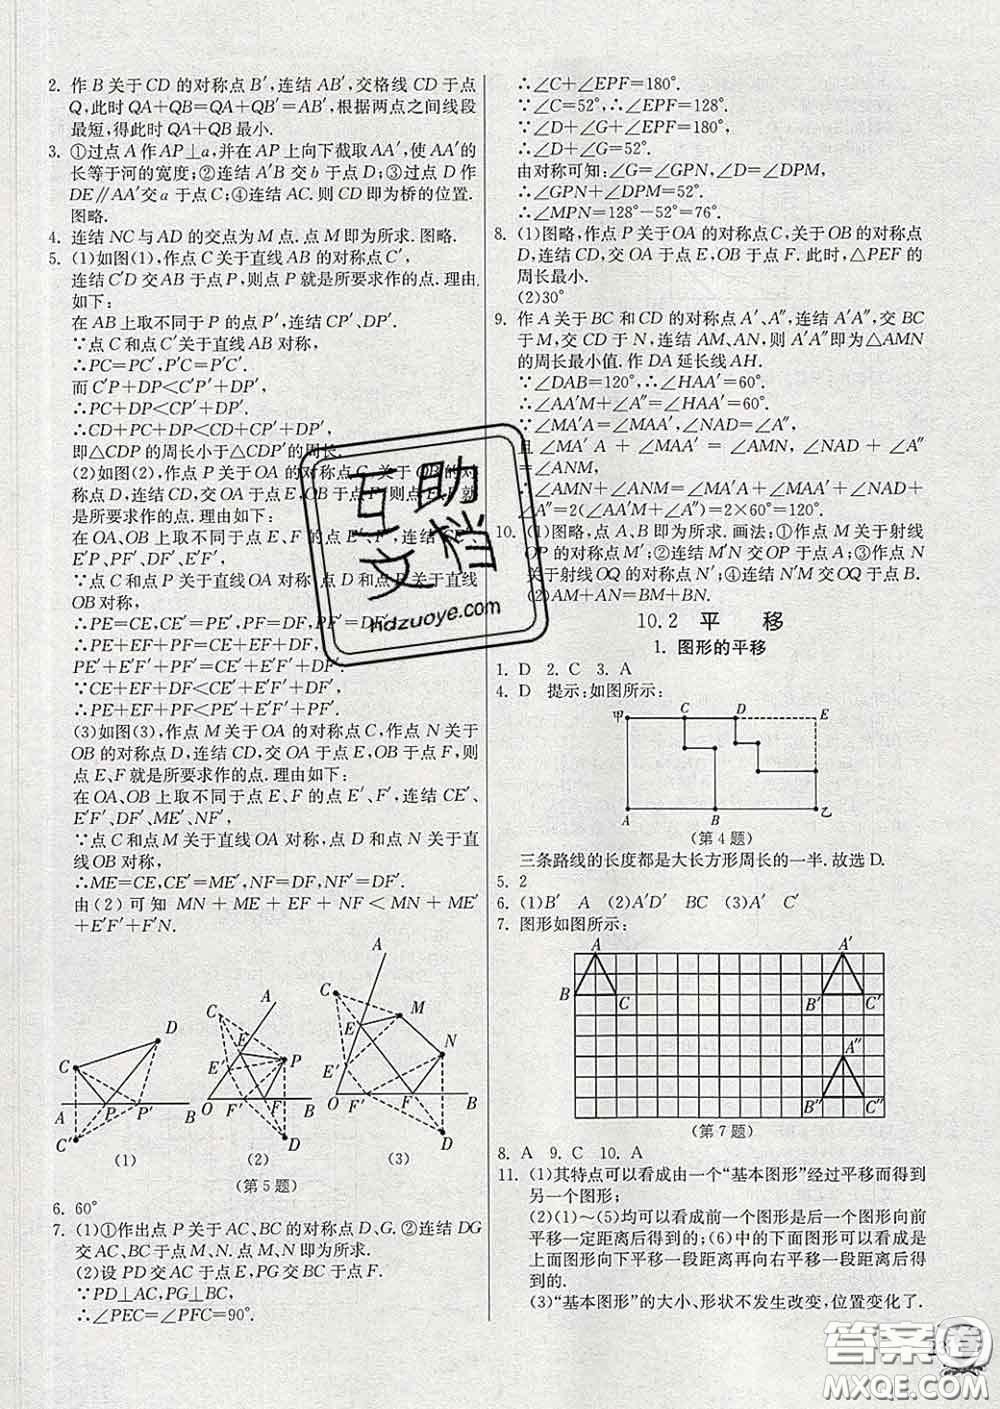 2. 作B关于CD的对称点B′,连结AB′,交格线CD于点
Q,此时QA+QB=QA+QB′=AB′,根据两点之间线段
最短,得此时QA+QB最小.
3. ①过点A作AP⊥a,并在AP上向下截取AA′,使AA′的
长等于河的宽度;②连结A′B交b于点D;③过点D作
DE∥AA′交a于点C;④连结AC.则CD即为桥的位置.
图略.
4. 连结NC与AD的交点为M点.点M即为所求.图略.
5. (1)如图(1),作点C关于直线AB的对称点C′,
连结C′D交AB于点P,则点P就是所要求作的点.理由
如下:
在AB上取不同于P的点P′,连结CP′、DP′.
∵点C和点C′关于直线AB对称,
∴PC=PC′,P′C=P′C′.
而C′P+DP<C′P′+DP′,
∴PC+DP<CP′+DP′.
∴CD+PC+DP<CD+CP′+DP′,
即△CDP的周长小于△CDP′的周长.
(2)如图(2),作点P关于OA的对称点C,关于OB的对
称点D,连结CD,交OA于点E,OB于点F,则点E、F就
是所要求作的点.理由如下:
在OA、OB上取不同于点E、F的点E′、F′,连结CE′、
E′P、PF′、DF′、E′F′,
∵点C和点P关于直线OA对称,点D和点P关于直线
OB对称,
∴PE=CE,CE′=PE′,PF=DF,PF′=DF′.
∴PE+EF+PF=CE+EF+DF,
PE′+E′F′+PF′=CE′+E′F′+DF′,
∵CE+EF+DF<CE′+E′F′+DF′,
∴PE+EF+PF<PE′+E′F′+PF′.
(3)如图(3),作点M关于OA的对称点C,作点N关于
OB的对称点D,连结CD,交OA于点E,OB于点F,则
点E、F就是所要求作的点.理由如下:
在OA、OB上取不同于点E、F的点E′、F′,连结CE′、
E′F′、DF′、ME′、NF′,
∵点C和点M关于直线OA对称,点D和点N关于直
线OB对称,
∴ME=CE,CE′=ME′,NF=DF,NF′=DF′.
由(2)可知MN+ME+EF+NF<MN+ME′
+E′F′+F′N.
C D A P P′ B C′
(1)
A C E P E′ O F′ F B D
(2)
A C M E N E′ O F′ F B D
(3)
(第5题)
6. 60°
7. (1)①作出点P关于AC、BC的对称点D、G.②连结DG
交AC、BC于点M、N.点M、N即为所求.
(2)设PD交AC于点E,PG交BC于点F.
∵PD⊥AC,PG⊥BC,
∴∠PEC=∠PFC=90°.
∴∠C+∠EPF=180°.
∵∠C=52°,∴∠EPF=128°.
∵∠D+∠G+∠EPF=180°,
∴∠D+∠G=52°.
由对称可知:∠G=∠GPN,∠D=∠DPM.
∴∠GPN+∠DPM=52°.
∴∠MPN=128°-52°=76°.
8. (1)图略,作点P关于OA的对称点C,关于OB的对称点
D,连结CD,交OA于点E,OB于点F.此时,△PEF的
周长最小.
(2)30°
9. 作A关于BC和CD的对称点A′、A″,连结A′A″,交BC
于M,交CD于N,连结AM、AN,则A′A″即为△AMN
的周长最小值.作DA延长线AH.
∵∠DAB=120°,∴∠HAA′=60°.
∴∠AA′M+∠A″=∠HAA′=60°.
∵∠MA′A=∠MAA′,∠NAD=∠A″,
且∠MA′A+∠MAA′=∠AMN,∠NAD+∠A″
=∠ANM,
∴∠AMN+∠ANM=∠MA′A+∠MAA′+∠NAD+
∠A″=2(∠AA′M+∠A″)=2×60°=120°.
10. (1)图略,点A、B即为所求.画法:①作点M关于射线
OP的对称点M′;②连结M′N交OP于点A;③作点N
关于射线OQ的对称点N′;④连结N′M交OQ于点B.
(2)AM+AN=BM+BN.
10.2 平 移
1. 图形的平移
1. D 2. C 3. A
4. D 提示:如图所示:
甲 C D E
A B 乙
(第4题)
三条路线的长度都是大长方形周长的一半.故选D.
5. 2
6. (1)B′ A (2)A′D′ BC (3)A′ C′
7. 图形如图所示:
A A′
B C B′ C′
A″
B″ C″
(第7题)
8. A 9. C 10. A
11. (1)其特点可以看成由一个“基本图形”经过平移而得到
另一个图形;
(2)(1)~(5)均可以看成前一个图形由一个图形向前
平移一定距离后得到的;(6)中的下面图形可以看成是
上面图形向下平移一段距离再向右平移一段距离后得
到的.
(3)“基本图形”的大小、形状不发生改变,位置变化了.
互助
文档
hdzuoye.com
答案圈
MXQE.COM